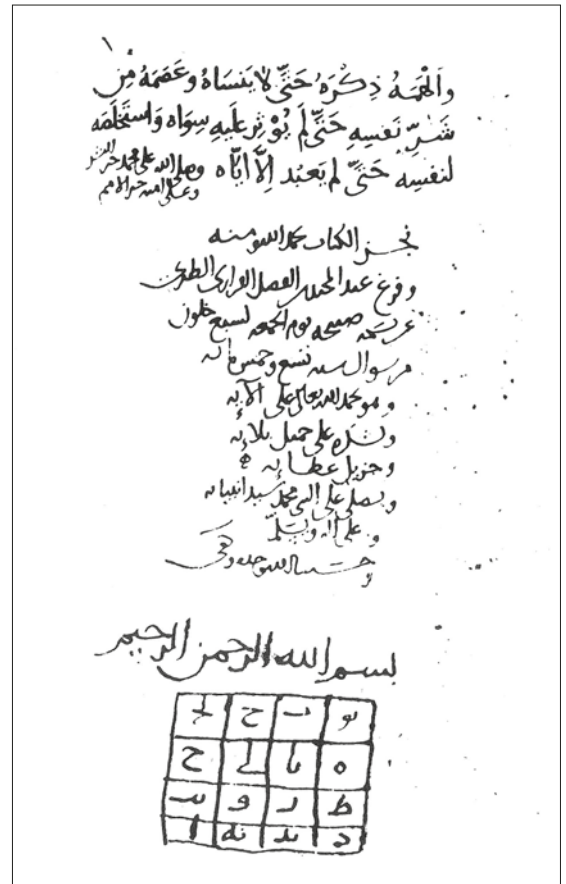 ١
وألهمه ذِكْرَهُ حَتَّى لا يَنْسَاهُ وعَصَمَهُ مِن
شَرِّ نَفسِهِ حَتَّى لَم يُؤثِر عليهِ سِوَاه وَاستَخلَصَه
لنفسِهِ حَتَّى لم يَعبُد إِلَّا إيَّاه وصلى الله على محمد خير البشر
وعلى امته خير الامم
نجز الكتاب بحمد الله ومنه
وفرغ عبد الفضل الطبري
صبيحة يوم الجمعه لسبع خلون
من شوال سنه تسع وخمس مائه
وهو بحمد الله تعالى على آلائه
ويشكره على جميل بلائه
وجزيل عطائه
ويصلي على النبي محمد سيد انبيائه
وعلى اله ويسلم
حسبنا الله وحده وكفى
بسم الله الرحمن الرحيم
يو ب ح
ه يا ح
ط و
د يد يه ا